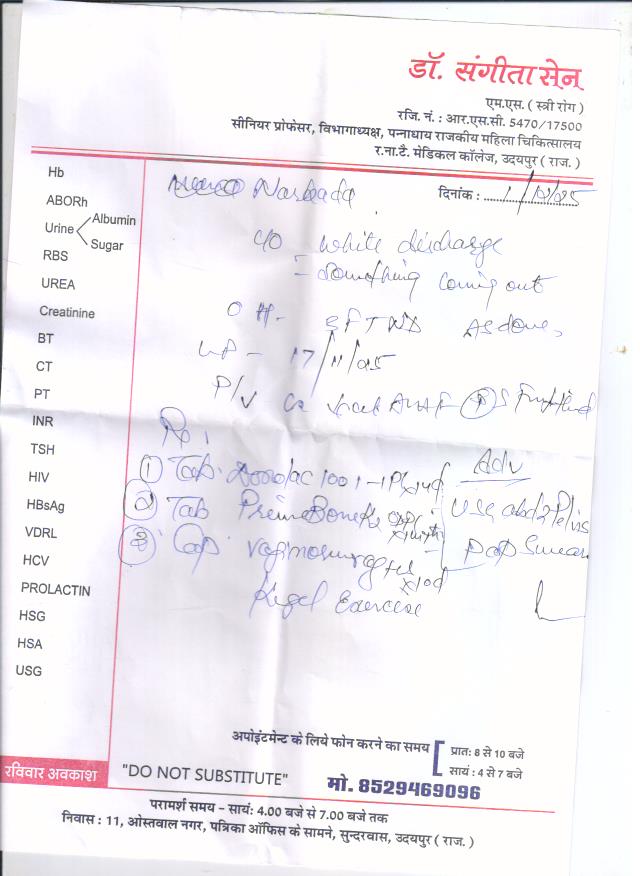 डॉ. संगीता सेन
एम.एस. ( स्त्री रोग )
रजि. नं. : आर.एस.सी. 5470/17500
सीनियर प्रोफेसर, विभागाध्यक्ष, पन्नाधाय राजकीय महिला चिकित्सालय
र.ना.टै. मेडिकल कॉलेज, उदयपुर ( राज. )
दिनांक :
Hb
ABORh
Urine Albumin
Sugar
RBS
UREA
Creatinine
BT
CT
PT
INR
TSH
HIV
HBsAg
VDRL
HCV
PROLACTIN
HSG
HSA
USG
Narbada
c/o white discharge
something coming out
O H-
LMP - 17/11/25
P/V
Rx
① Tab.
② Tab
③ Cap.
Kegel Exercise
Adv
USG abd & Pelvis
PAP Smear
अपोइंटमेन्ट के लिये फोन करने का समय
प्रात: 8 से 10 बजे
सायं : 4 से 7 बजे
रविवार अवकाश
"DO NOT SUBSTITUTE"
मो. 8529469096
परामर्श समय – सायं: 4.00 बजे से 7.00 बजे तक
निवास : 11, ओस्तवाल नगर, पत्रिका ऑफिस के सामने, सुन्दरवास, उदयपुर ( राज. )